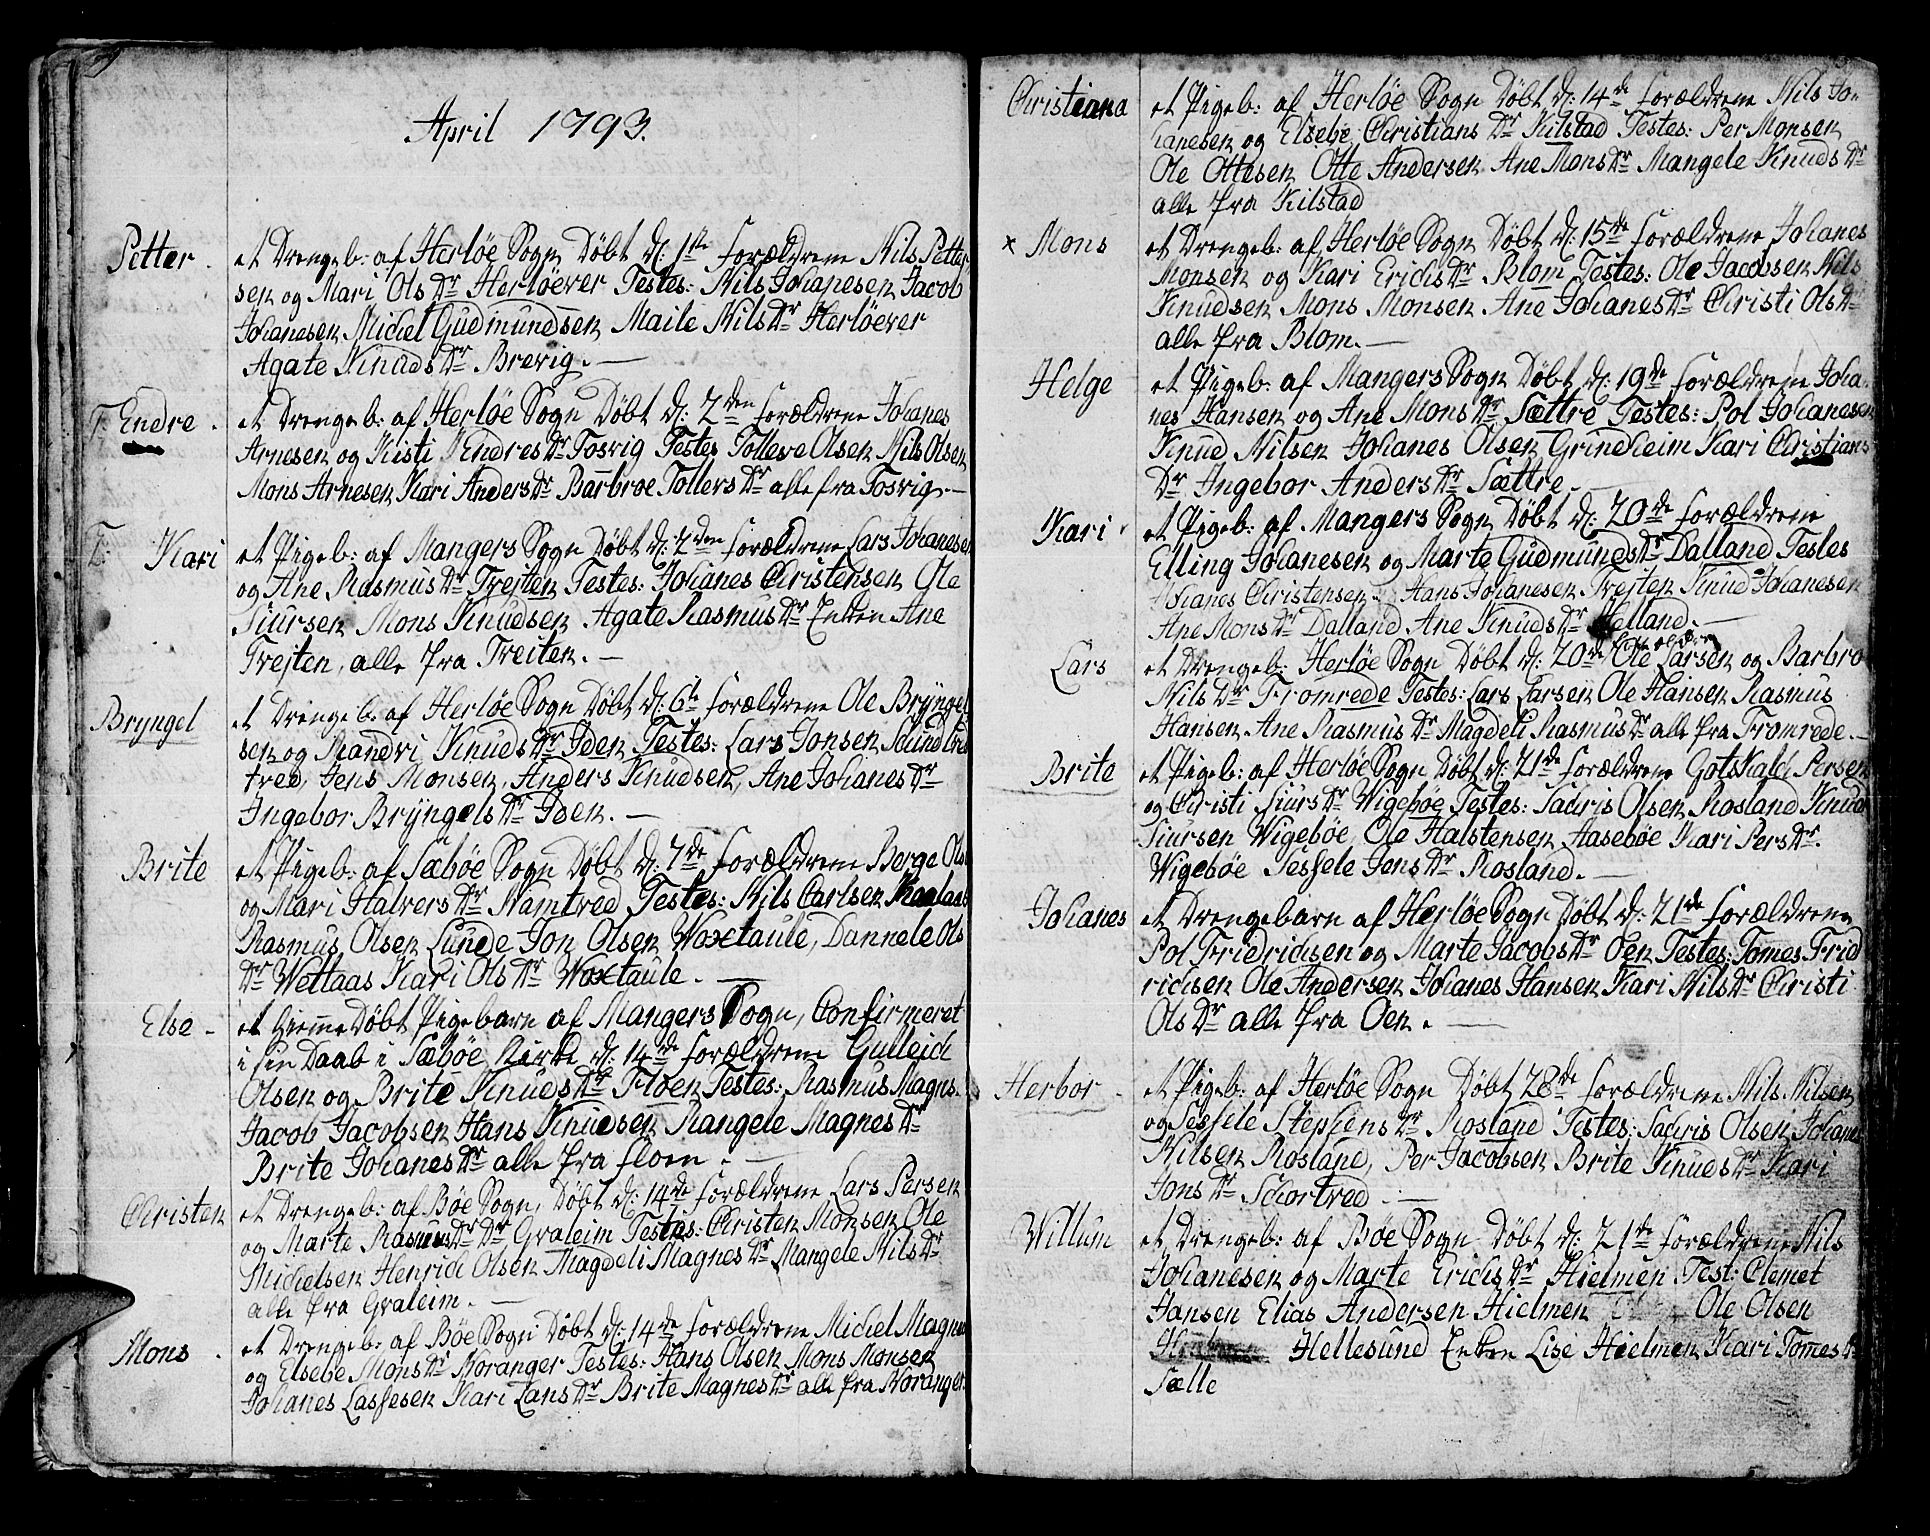 April 1793.
Petter. et Drengeb: af Herløe Sogn Døbt d: 1ste forældrene Nils Petter
sen og Mari Ols Dr Herløever Testes: Nils Johanesen Jacob
Johanesen Michel Gudmundsen Maile Nils Dr Herløever
Agate Knuds Dr Brevig. —
T. Endre. et Drengeb: af Herløe Sogn Døbt d: 2den forældrene Johanes
Arnesen og Kisti Endres Dr Fosvig Testes Tolleve Olsen Nils Olsen
Mons Arnesen Kari Anders Dr Barbroe Tollers Dr alle fra Fosvig. —
T: Kari et Pigeb: af Mangers Sogn Døbt d: 2den forældrene Lars Johanesen
og Ane Rasmus Dr Trejten Testes: Johanes Christensen Ole
Siursen Mons Knudsen Agate Rasmus Dr Enken Ane
Trejten, alle fra Treiten. —
Bryngel et Drengeb: af Herløe Sogn Døbt d: 6te forældrene Ole Bryngel
sen og Randvi Knuds Dr Iden Testes: Lars Jonsen
tred, Jens Monsen, Anders Knudsen, Ane Johanes Dr
Ingebor Bryngels Dr Iden. —
Brite et Pigeb: af Sæbøe Sogn Døbt d: 7de forældrene Berge Ols
og Mari Halvers Dr Namtved Testes: Nils Carlsen Kaalaas
Rasmus Olsen Lunde Jon Olsen Woxtaule, Dannele Ols
Dr Wettaas Kari Ols Dr Woxtaule. —
Else - et HjemmeDøbt Pigebarn af Mangers Sogn, Confirmeret
i sin Daab i Sæbøe Kirke d: 14de forældrene Gulleich
Olsen og Brite Knuds Dr Floen Testes: Rasmus Magns.
Jacob Jacobsen Hans Knudsen Rangele Magnes Dr
Brite Johanes Dr alle fra floen. —
Christen et Drengeb: af Bøe Sogn, Døbt d: 14de forældrene Lars Persen
og Marte Rasmus Dr Dr Graleim Testes: Christen Monsen Ole
Michelsen Henrich Olsen Magdeli Magnes Dr Mangele Nils Dr
alle fra Graleim. —
Mons. et Drengeb: af Bøe Sogn Døbt d: 14de forældrene Michel Magne
og Elsebe Mons Dr Noranger Testes: Hans Olsen Mons Monsen
Johanes Lassesen Kari Lans Dr Brite Magnes Dr alle fra Noranger.
Christiana et Pigeb: af Herløe Sogn Døbt d: 14de forældrene Nils Jo-
hanesen og Elsebe Christians Dr Kilstad Testes: Per Monsen
Ole Ottesen Otte Andersen Ane Mons Dr Mangele Knuds Dr
alle fra Kilstad
x Mons et Drengeb: af Herløe Sogn Døbt d: 15de forældrene Johanes
Monsen og Kari Erichs Dr Blom Testes: Ole Jacobsen Nils
Knudsen Mons Monsen Ane Johanes Dr Christi Ols Dr
alle fra Blom. —
Helge et Pigeb: af Mangers Sogn Døbt d: 19de forældrene Joha-
nes Hansen og Ane Mons Dr Sættre Testes: Pol Johanesen
Knud Nilsen Johanes Olsen Grindheim Kari Christians
Dr Ingebor Anders Dr Sættre. —
Kari. et Pigeb: af Mangers Sogn Døbt d: 20de forældrene
Elling Johanesen og Marte Gudmunds Dr Dalland Testes
Johanes Christensen Hans Johanesen Trejten Knud Johanesen
Ane Mons Dr Dalland Ane Knuds Dr Helland. —
forældrene
Lars et Drengeb: Herløe Sogn Døbt d: 20de Ole Larsen og Barbro
Nils Dr Fromrede Testes: Lars Larsen Ole Hansen Rasmus
Hansen Ane Rasmus Dr Magdeli Rasmus Dr alle fra Fromrede. —
Brite et Pigeb: af Herløe Sogn Døbt d: 21de forældrene Gotskalch Persen
og Christi Siurs Dr Wigebøe Testes: Sachris Olsen Rosland Knud
Siursen Wigebøe Ole Halstensen Aasebøe Kari Pers Dr.
Wigebøe Sessele Jens Dr Rosland. —
Johanes et Drengebarn af Herløe Sogn Døbt d: 21de forældrene
Pol Fridrichsen og Marte Jacobs Dr Oen Testes: Tomes Frid
richsen Ole Andersen Johanes Hansen Kari Nils Dr Christi
Ols Dr alle fra Oen. —
Herbor. et Pigeb: af Herløe Sogn Døbt 28de forældrene Nils Nilsen
og Sessele Stephens Dr Rosland Testes: Sachris Olsen Johanes
Nilsen Rosland, Per Jacobsen Brite Knuds Dr Kari
Jons Dr Schortved. —
Willum et Drengeb: af Bøe Sogn Døbt d: 21de forældrene Nils
Johanesen og Marte Erichs Dr Hielmen Test: Clemet
Jansen Elias Andersen Hielmen Ole Olsen
Hellesund Enken Lise Hielmen Kari Tomes Dr
Sælle